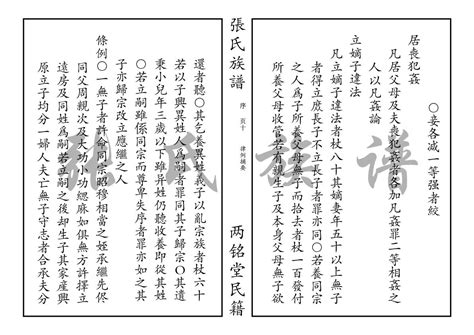 ○妾各減一等强者絞
居喪犯姦
凡居父母及夫喪犯姦者各加凡姦罪二等相姦之
人以凡姦論
立嫡子違法
凡立嫡子違法者杖八十其嫡妻年五十以上無子
者得立庶長子不立長子者罪亦同○若養同宗
之人爲子所養父母無子而捨去者杖一百發付
所養父母收管若有親生子及本身父母無子欲
張氏族譜
序
頁十
律例摘要
两铭堂民籍
還者聽○其乞養異姓義子以亂宗族者杖六十
若以子與異姓人爲嗣者罪同其子歸宗○其遺
棄小兒年三歲以下雖異姓仍聽收養即從其姓
○若立嗣雖係同宗而尊卑失序者罪亦如之其
子亦歸宗改立應繼之人
條例○一無子者許令同宗昭穆相當之姪承繼先侭
同父周親次及大功小功緦麻如俱無方許擇立
遠房及同姓爲嗣若立嗣之後却生子其家產與
原立子均分一婦人夫亡無子守志者合承夫分
氏族譜